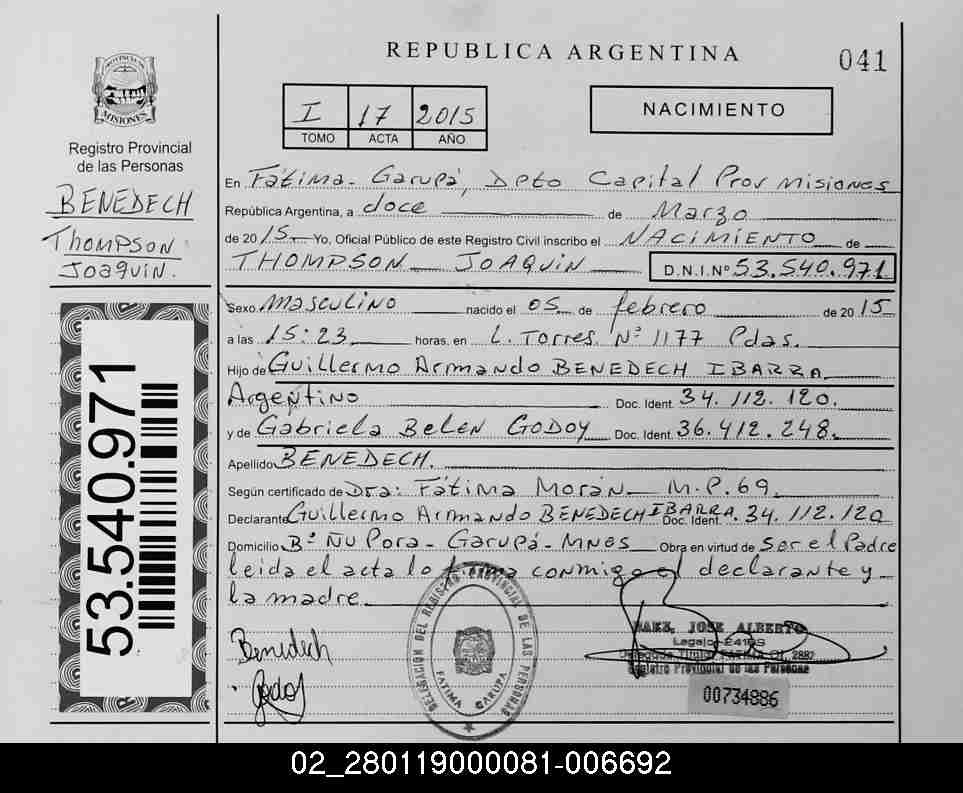 REPUBLICA ARGENTINA
041
PROVINCIA DE
MISIONES
Registro Provincial
de las Personas
BENEDECH
Thompson
Joaquin.
I 17 2015
TOMO ACTA AÑO
NACIMIENTO
En Fátima - Garupá, Dpto Capital Prov Misiones
República Argentina, a doce de Marzo
de 2015. Yo, Oficial Público de este Registro Civil inscribo el NACIMIENTO de
THOMPSON JOAQUIN D.N.I.Nº 53.540.971
Sexo Masculino nacido el 05 de febrero de 2015
a las 15:23 horas, en L. Torres Nº 1177 Pdas.
Hijo de Guillermo Armando BENEDECH IBARRA
Argentino Doc. Ident. 34.112.120.
y de Gabriela Belen GODOY Doc. Ident. 36.412.248.
Apellido BENEDECH.
Según certificado de Dra: Fátima Morán - M.P. 69
Declarante Guillermo Armando BENEDECH IBARRA. Doc. Ident. 34.112.120
Domicilio Bº Ñu Pora - Garupá - MNES Obra en virtud de Ser el Padre
leida el acta lo firma conmigo el declarante y
la madre
53.540.971
Benedech
Godoy
DELEGACION DEL REGISTRO PROVINCIAL DE LAS PERSONAS
FATIMA GARUPA
BAEZ, JOSE ALBERTO
Registro Provincial de las Personas
00734886
02_280119000081-006692